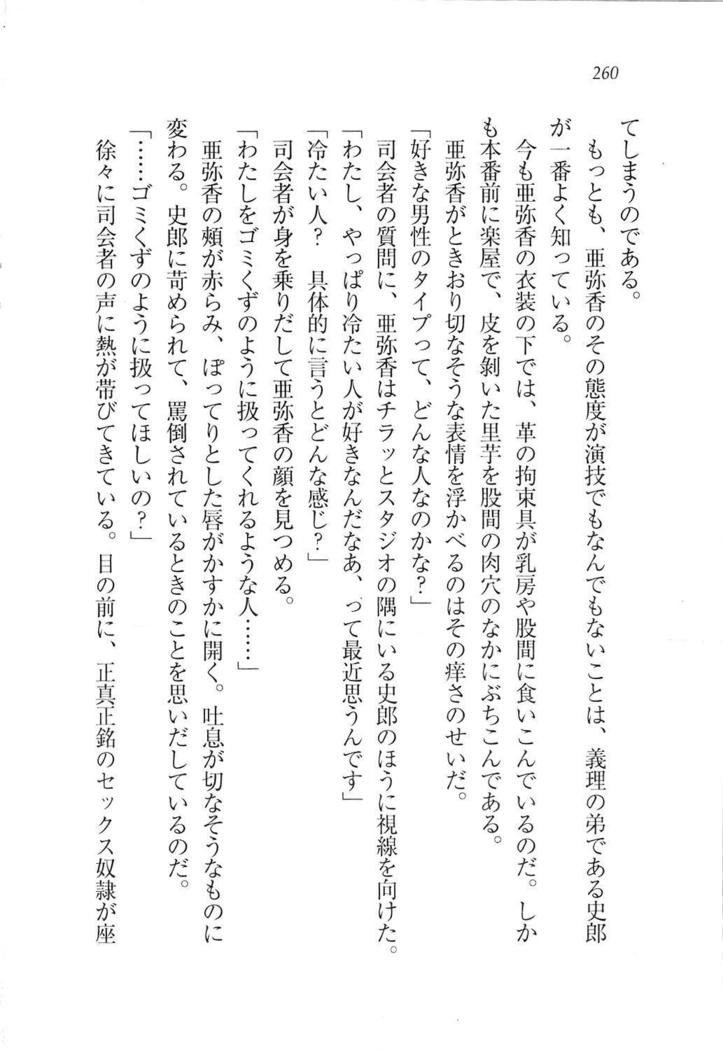 260
てしまうのである。
もっとも、亜弥香のその態度が演技でもなんでもないことは、義理の弟である史郎
が一番よく知っている。
今も亜弥香の衣装の下では、革の拘束具が乳房や股間に食いこんでいるのだ。しか
も本番前に楽屋で、皮を剝いた里芋を股間の肉穴のなかにぶちこんである。
亜弥香がときおり切なそうな表情を浮かべるのはその痒さのせいだ。
「好きな男性のタイプって、どんな人なのかな?」
司会者の質問に、亜弥香はチラッとスタジオの隅にいる史郎のほうに視線を向けた。
「わたし、やっぱり冷たい人が好きなんだなあ、って最近思うんです」
「冷たい人? 具体的に言うとどんな感じ?」
司会者が身を乗りだして亜弥香の顔を見つめる。
「わたしをゴミくずのように扱ってくれるような人……」
亜弥香の頰が赤らみ、ぽってりとした唇がかすかに開く。吐息が切なそうなものに
変わる。史郎に苛められて、罵倒されているときのことを思いだしているのだ。
「……ゴミくずのように扱ってほしいの?」
徐々に司会者の声に熱が帯びてきている。目の前に、正真正銘のセックス奴隷が座